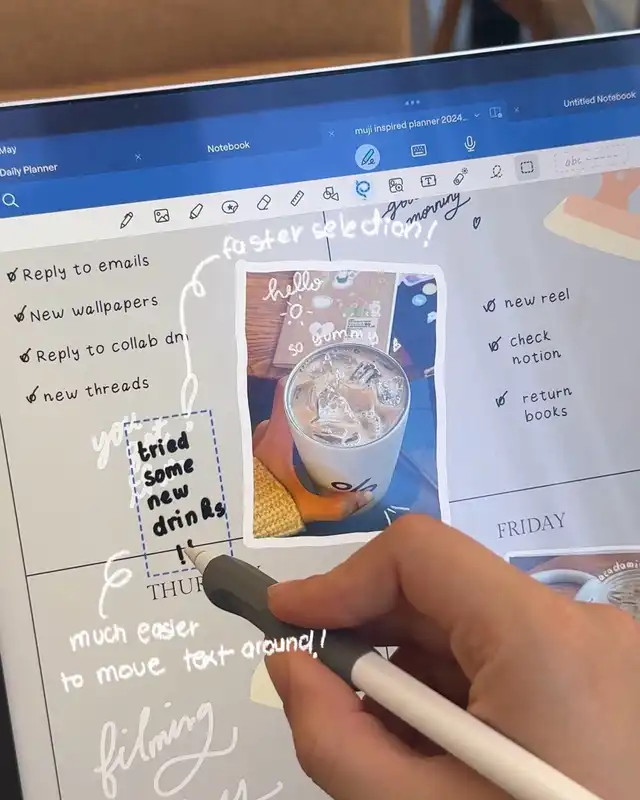 May
Daily Planner
Notebook
muji inspired planner 2024...
Untitled Notebook
abc
good
morning
faster selection!
Reply to emails
New wallpapers
Reply to collab dm
new threads
hello
so yummy
new reel
check
notion
return
books
you
tried
some
new
drinks
!!
FRIDAY
THUR
academi
much easier
to move text around!
filming